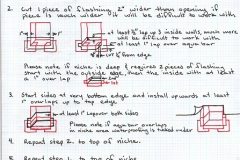 2. Cut 1 piece of flashing 2" wider then opening if
piece is much wider it will be difficult to work with.
at least ½" lap up 3 inside walls, much more
will be difficult to work with.
at least 1" lap over aqua bar
from edge
Please note if niche is deep & require 2 pieces of flashing
start with the outside edge, then the inside with at least
a 1" over lap
3. Start sides at very bottom edge and install upwards at least
1" overlaps up to top edge
at least 1" lap over both sides
Please note if aqua bar overlaps
in niche area waterproofing is tucked under
4. Repeat step 2. to top of niche.
5. Repeat step 1. to top of niche